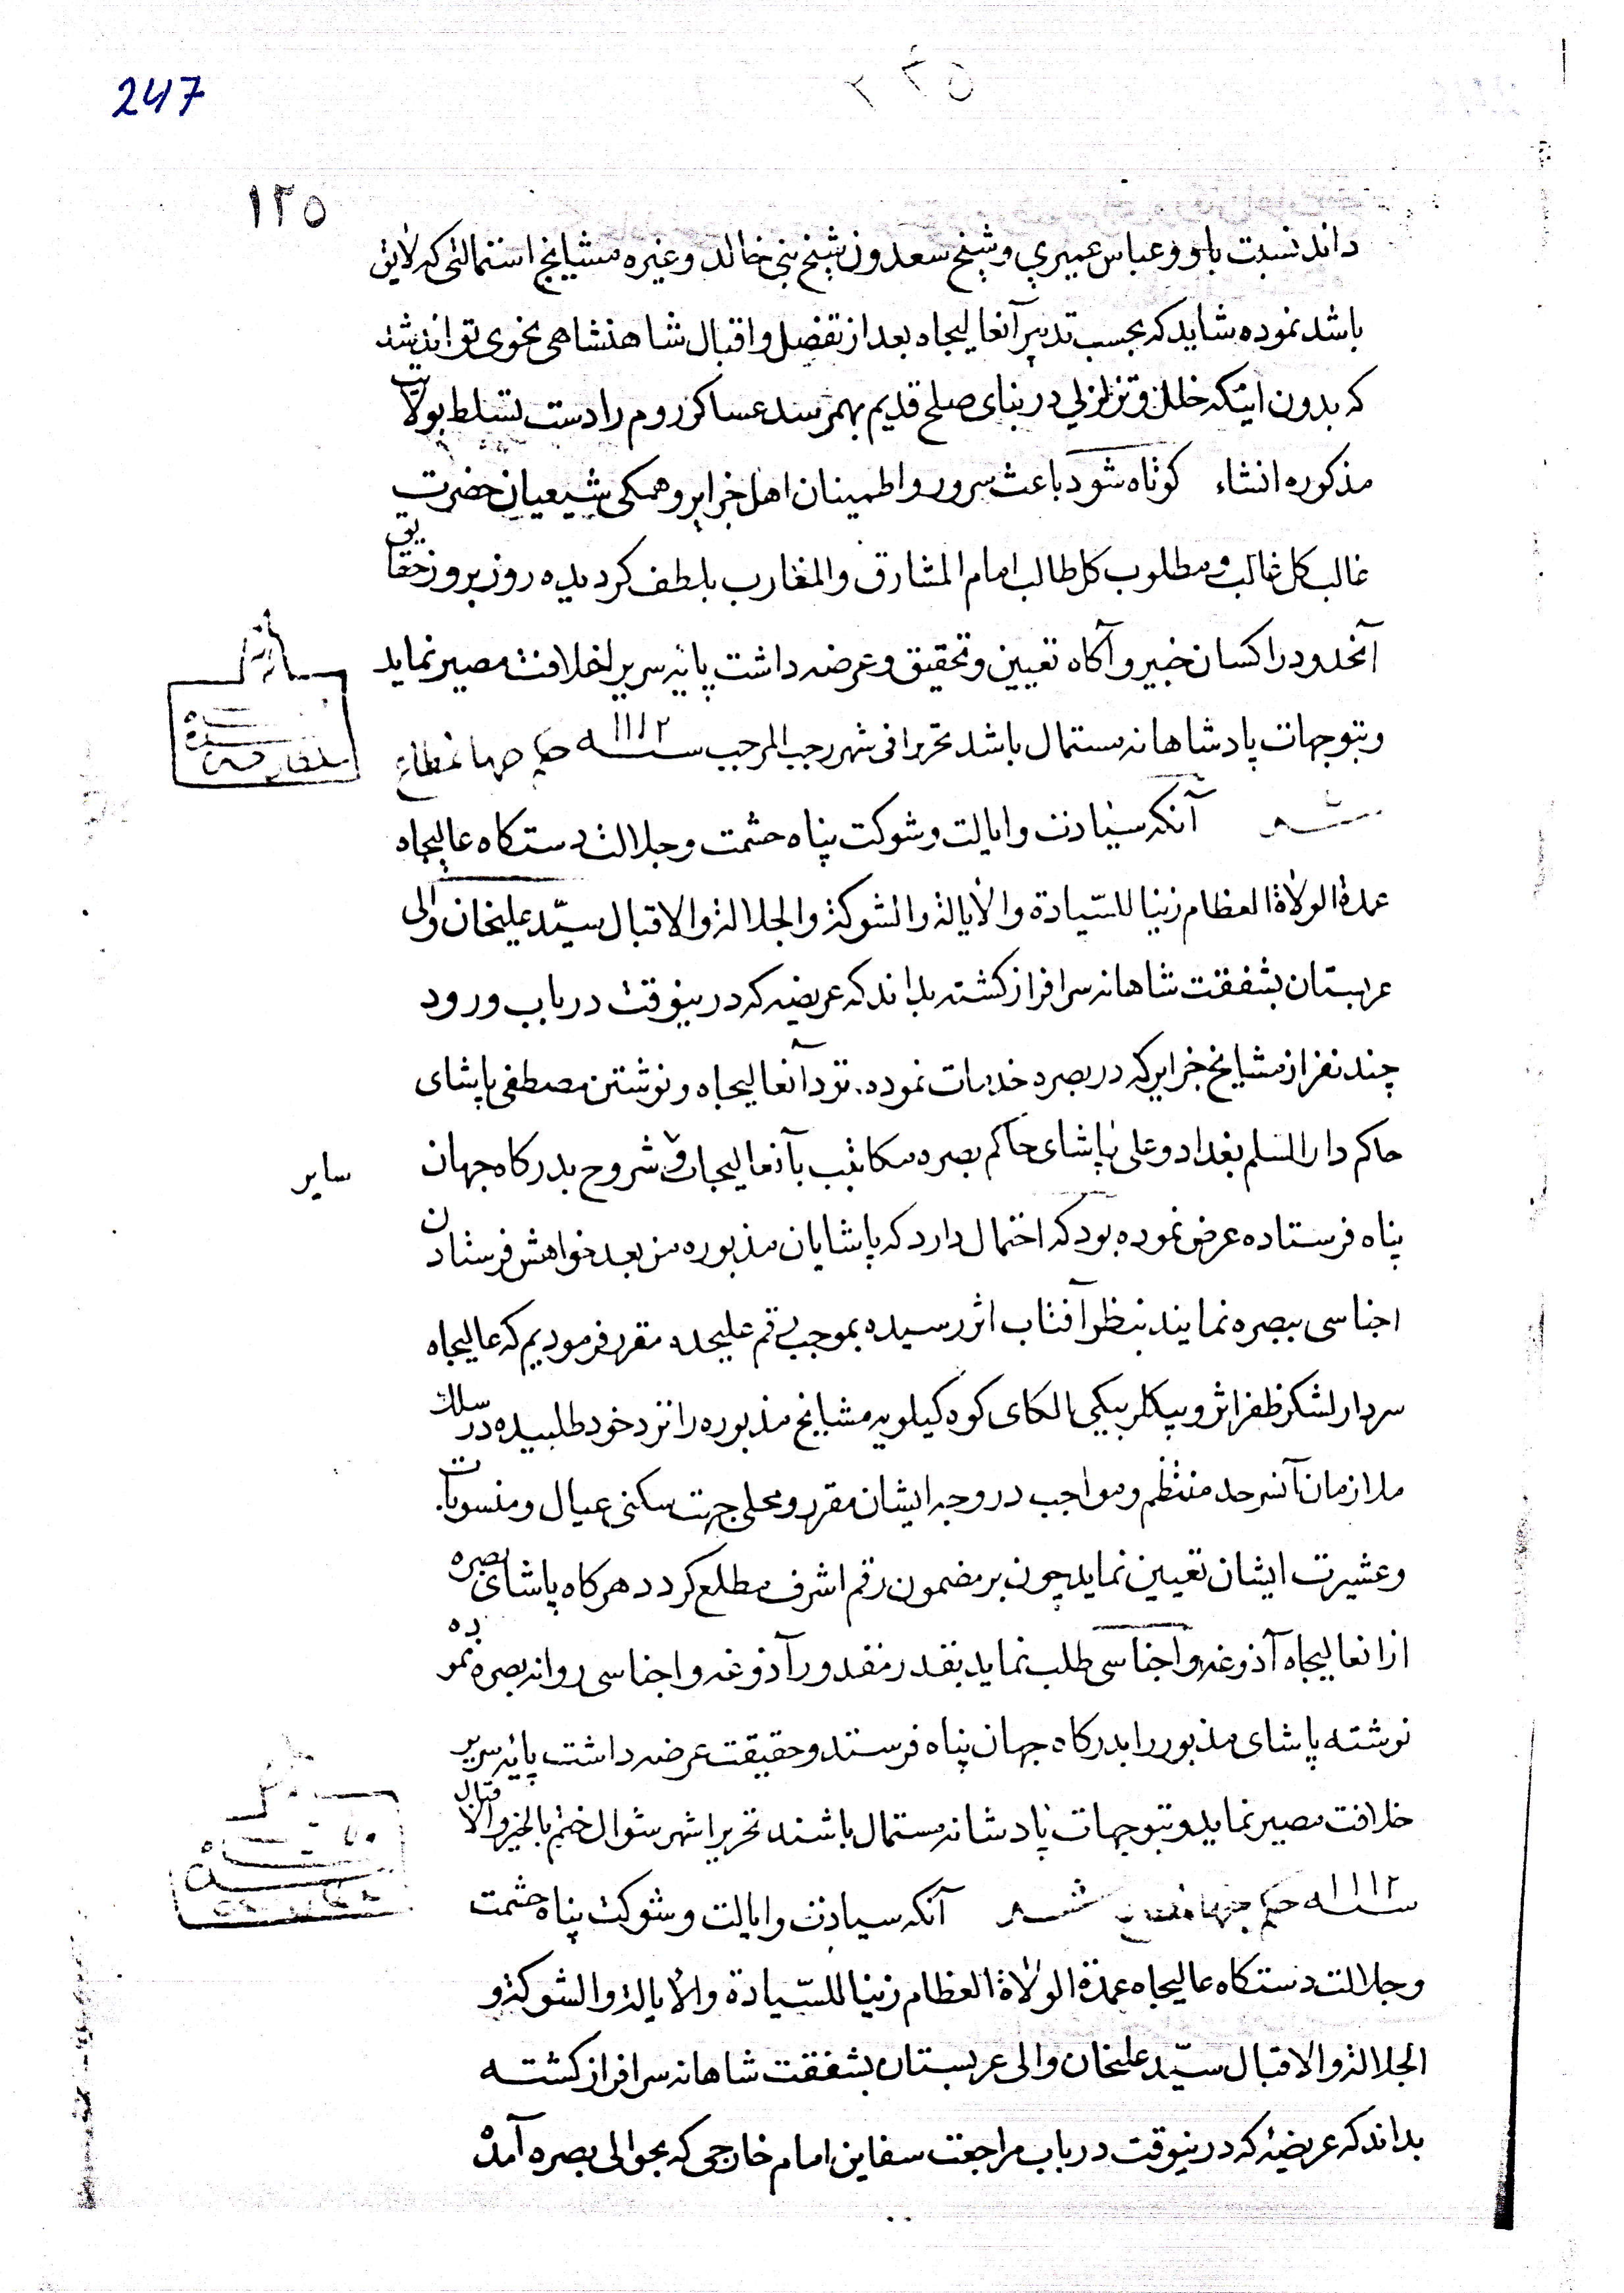 247
۱۲۵
داند نسبت باو و عباس عمیری و شیخ سعدون شیخ بنی خالد و غیره مشایخ استمالتی که لایق
باشد نموده شاید که بحسب تدبیر آنعالیجاه بعد از تفضل و اقبال شاهنشاهی بنحوی تواند شد
که بدون اینکه خلل و تزلزلی در بنای صلح قدیم بهمرسد عساکر روم را دست تسلط بولایت
مذکوره انشاء کوتاه شود باعث سرور و اطمینان اهل جزایر و همکی شیعیان حضرت
غالب کل غالب و مطلوب کل طالب امام المشارق و المغارب بلطف کردیده روز بروز حقایق
آنحدود را کسان خبیر و آکاه تعیین و تحقیق و عرضه داشت پایه سریر خلافت مصیر نماید
و بتوجهات پادشاهانه مستمال باشد تحریرا فی شهر رجب المرجب سنه ۱۱۱۲ حکم جهانمطاع
شد آنکه سیادت و ایالت و شوکت پناه حشمت و جلالت دستکاه عالیجاه
عمدة الولاة العظام زینا للسّیادة و الایالة و الشوکة و الجلالة و الاقبال سیّد علیخان والی
عربستان بشفقت شاهانه سرافراز کشته بداند که عریضه که درینوقت در باب ورود
چند نفر از مشایخ جزایر که در بصره خدمات نموده نزد آنعالیجاه و نوشتن مصطفی پاشای
حاکم دارالسلم بغداد و علی پاشای حاکم بصره مکاتیب بآنعالیجاه و شروح بدرکاه جهان
سایر
پناه فرستاده عرض نموده بود که احتمال دارد که پاشایان مذبوره من بعد خواهش فرستادن
اجناسی ببصره نمایند بنظر آفتاب اثر رسیده بموجب رقم علیحده مقرر فرمودیم که عالیجاه
سردار لشکر ظفر اثر و بیکلربیکی الکای کوه کیلویه مشایخ مذبوره را نزد خود طلبیده در سلک
ملازمان آنسرحد منتظم و مواجب در وجه ایشان مقرر و محلی جهت سکنی عیال و منسوبات
و عشیرت ایشان تعیین نماید چون بر مضمون رقم اشرف مطلع کردد هرکاه پاشای بصره
از انعالیجاه آذوغه و اجناسی طلب نماید بقدر مقدور آذوغه و اجناسی روانه بصره نموده
نوشته پاشای مذبور را بدرکاه جهان پناه فرستد و حقیقت عرضه داشت پایه سریر
خلافت مصیر نماید و بتوجهات پادشانه مستمال باشند تحریرا شهر شوال ختم بالخیر و الاقبال
سنه ۱۱۱۲ حکم جهانمطاع شد آنکه سیادت و ایالت و شوکت پناه حشمت
و جلالت دستکاه عالیجاه عمدة الولاة العظام زینا للسّیادة و الایالة و الشوکة و
الجلالة و الاقبال سیّد علیخان والی عربستان بشفقت شاهانه سرافراز کشته
بداند که عریضهٔ که درینوقت در باب مراجعت سفاین امام خارجی که بحوالی بصره آمده